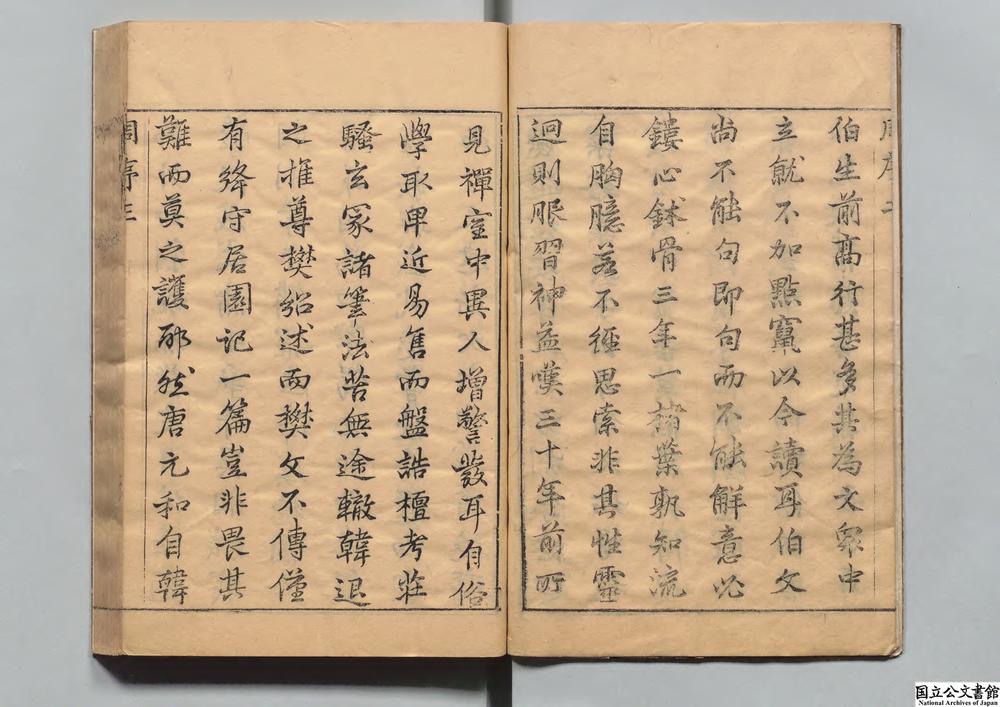 周序 二
伯生前高行甚多其為文眾中
立就不加點竄以今讀耳伯文
尚不能句即句而不能解意必
鏤心鉥骨三年一楮葉孰知流
自胸臆若不經思索非其性靈
迥則眼習神益嘆三十年前所
見禪室中異人增警發耳自俗
學取卑近易售而盤誥檀考莊
騷玄冢諸筆法苦無途轍韓退
之推尊樊紹述而樊文不傳僅
有絳守居園記一篇豈非畏其
難而莫之護耶然唐元和自韓
周序 三
国立公文書館
National Archives of Japan